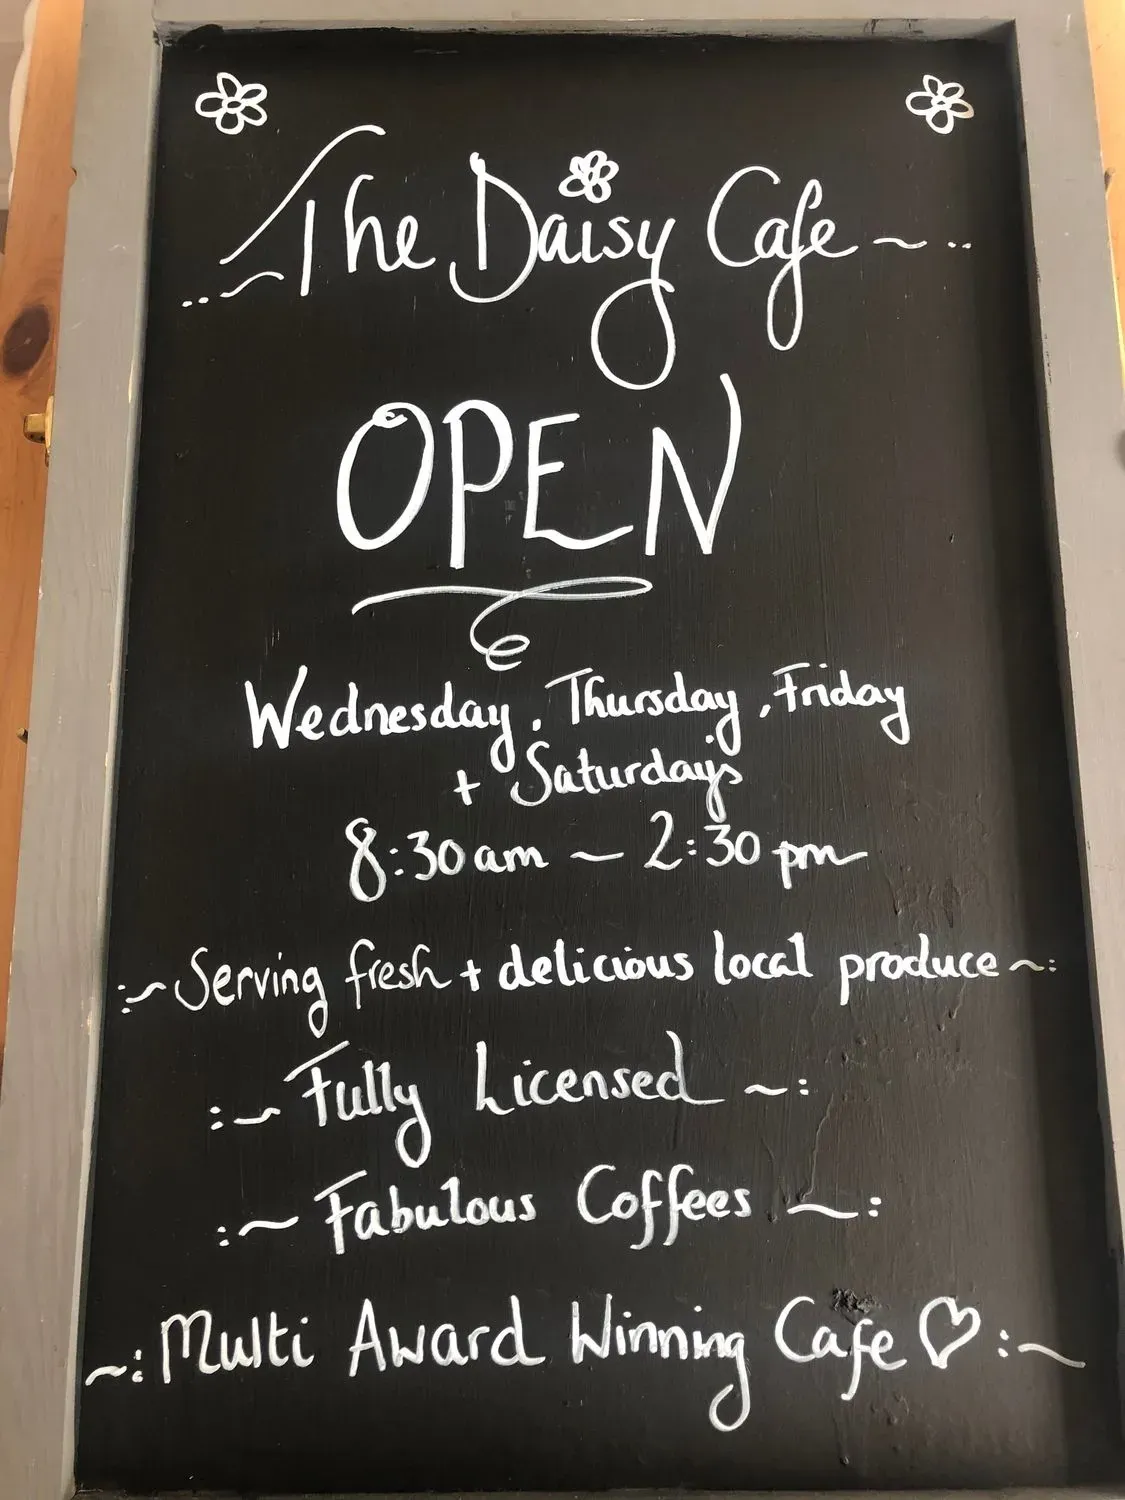 The Daisy Cafe
OPEN
Wednesday, Thursday, Friday
+ Saturdays
8:30am – 2:30pm
Serving fresh + delicious local produce
Fully Licensed
Fabulous Coffees
Multi Award Winning Cafe ♡